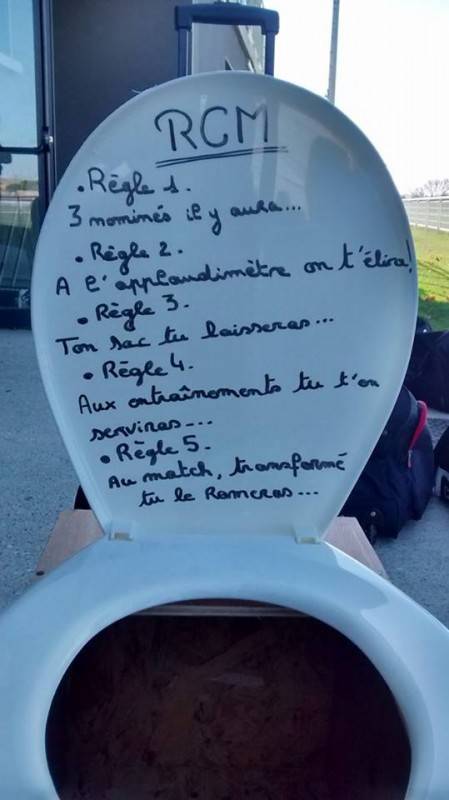 RCM
• Règle 1.
3 nominés il y aura...
• Règle 2.
A l'applaudimètre on t'élira!
• Règle 3.
Ton sac tu laisseras...
• Règle 4.
Aux entraînements tu t'en
serviras...
• Règle 5.
Au match, transformé
tu le Ramèras...